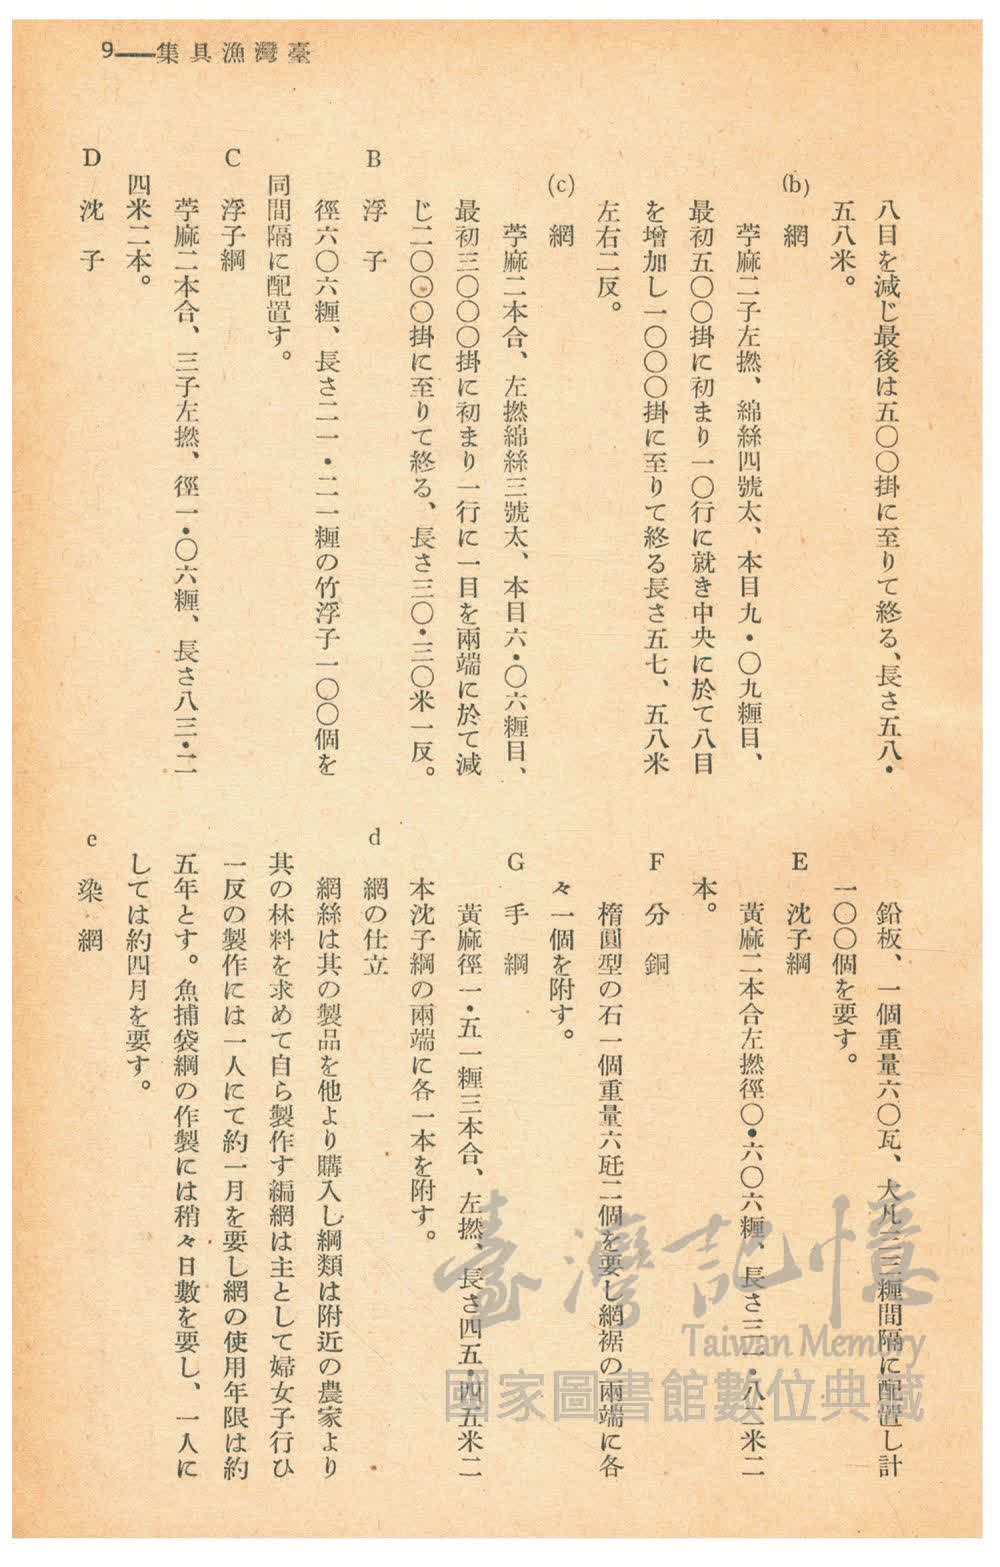 臺灣漁具集——9
八目を減じ最後は五〇〇掛に至りて終る、長さ五八・
五八米。
(b) 網
苧麻二子左撚、綿絲四號太、本目九・〇九糎目、
最初五〇〇掛に初まり一〇行に就き中央に於て八目
を增加し一〇〇〇掛に至りて終る長さ五七、五八米
左右二反。
(c) 網
苧麻二本合、左撚綿絲三號太、本目六・〇六糎目、
最初三〇〇〇掛に初まり一行に一目を兩端に於て減
じ二〇〇〇掛に至りて終る、長さ三〇・三〇米一反。
B 浮子
徑六〇六糎、長さ二一・二一糎の竹浮子一〇〇個を
同間隔に配置す。
C 浮子綱
苧麻二本合、三子左撚、徑一・〇六糎、長さ八三・二
四米二本。
D 沈子
鉛板、一個重量六〇瓦、大凡三三糎間隔に配置し計
一〇〇個を要す。
E 沈子綱
黃麻二本合左撚徑〇・六〇六糎、長さ三一・八二米二
本。
F 分銅
楕圓型の石一個重量六瓩二個を要し網裾の兩端に各
々一個を附す。
G 手綱
黃麻徑一・五一糎三本合、左撚、長さ四五・四五米二
本沈子綱の兩端に各一本を附す。
d 網の仕立
網絲は其の製品を他より購入し綱類は附近の農家より
其の林料を求めて自ら製作す編網は主として婦女子行ひ
一反の製作には一人にて約一月を要し網の使用年限は約
五年とす。魚捕袋網の作製には稍々日數を要し、一人に
しては約四月を要す。
e 染網
臺灣記憶
Taiwan Memory
國家圖書館數位典藏